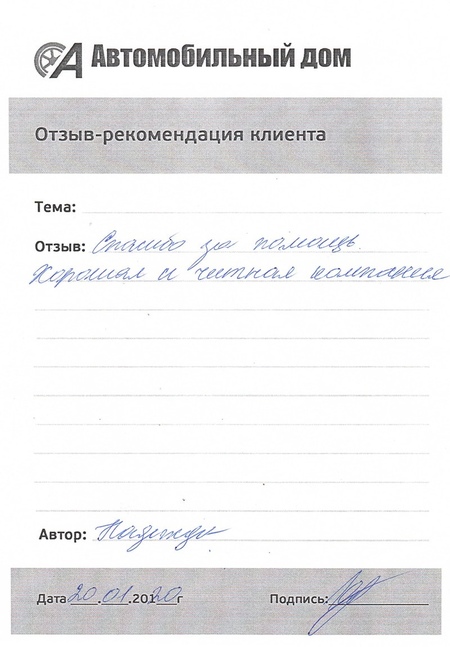 Автомобильный дом
Отзыв-рекомендация клиента
Тема:
Отзыв: Спасибо за помощь.
Хорошая и честная компания
Автор: Надежда
Дата 20.01.2020г Подпись: